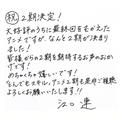 ㊗2期決定！
大好評のうちに最終回をむかえた
アニメですが、なんと2期が決まり
ました！
皆様からの2期を期待するお声のおか
げです！
めちゃくちゃ嬉しいです！
とんでもスキル、アニメ2期も是非ご視聴
よろしくお願いいたします！！
江口 連